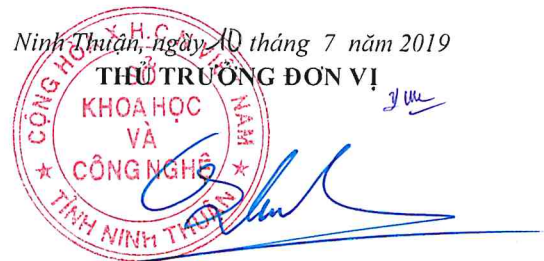 Ninh Thuận, ngày 10 tháng 7 năm 2019
THỦ TRƯỞNG ĐƠN VỊ
CỘNG HÒA X.H.C.N VIỆT NAM
SỞ
KHOA HỌC
VÀ
CÔNG NGHỆ
TỈNH NINH THUẬN